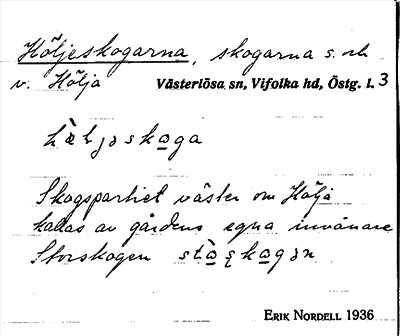 Höljeskogarna, skogarna s. och
v. Hölja Västerlösa sn, Vifolka hd, Östg. l. 3
hæ̀ljəskoga
Skogspartiet väster om Hölja
kallas av gårdens egna invånare
Storskogen
ERIK NORDELL 1936